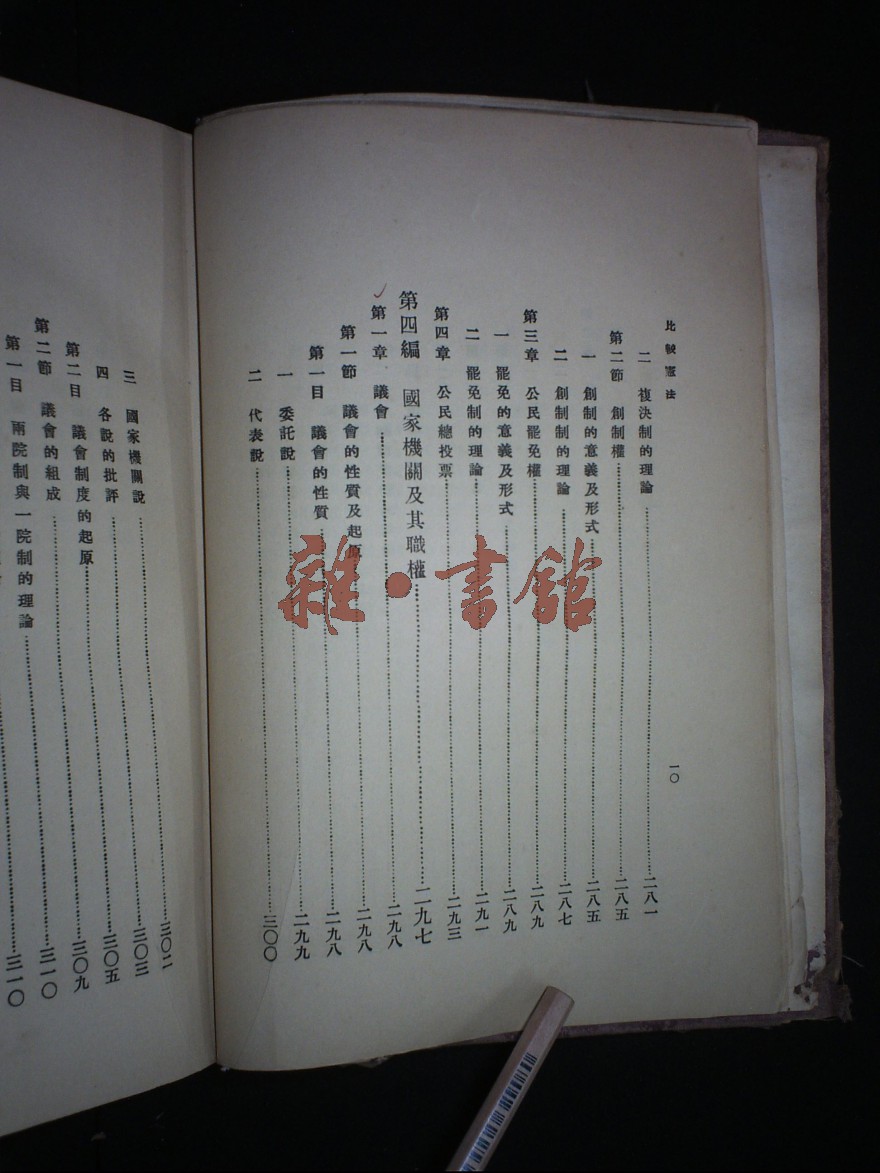 比較憲法
一〇
二 複決制的理論……二八一
第二節 創制權……二八五
一 創制的意義及形式……二八五
二 創制制的理論……二八七
第三章 公民罷免權……二八九
一 罷免的意義及形式……二八九
二 罷免制的理論……二九一
第四章 公民總投票……二九三
第四編 國家機關及其職權……二九七
第一章 議會……二九八
第一節 議會的性質及起原……二九八
第一目 議會的性質……二九八
一 委託說……二九九
二 代表說……三〇〇
三 國家機關說……三〇二
四 各說的批評……三〇三
第二目 議會制度的起原……三〇五
第二節 議會的組成……三〇九
第一目 兩院制與一院制的理論……三一〇
三一〇
雜·書館